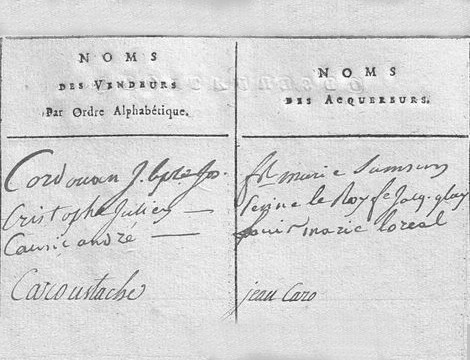 NOMS
DES VENDEURS
Par Ordre Alphabétique.
Cordouan J. bpte
Cristophe Julien —
Causic andré —
Caroustache
NOMS
DES ACQUEREURS.
marie Samson
le Roy fe Jacq.
Louis marie loreal
jean Caro